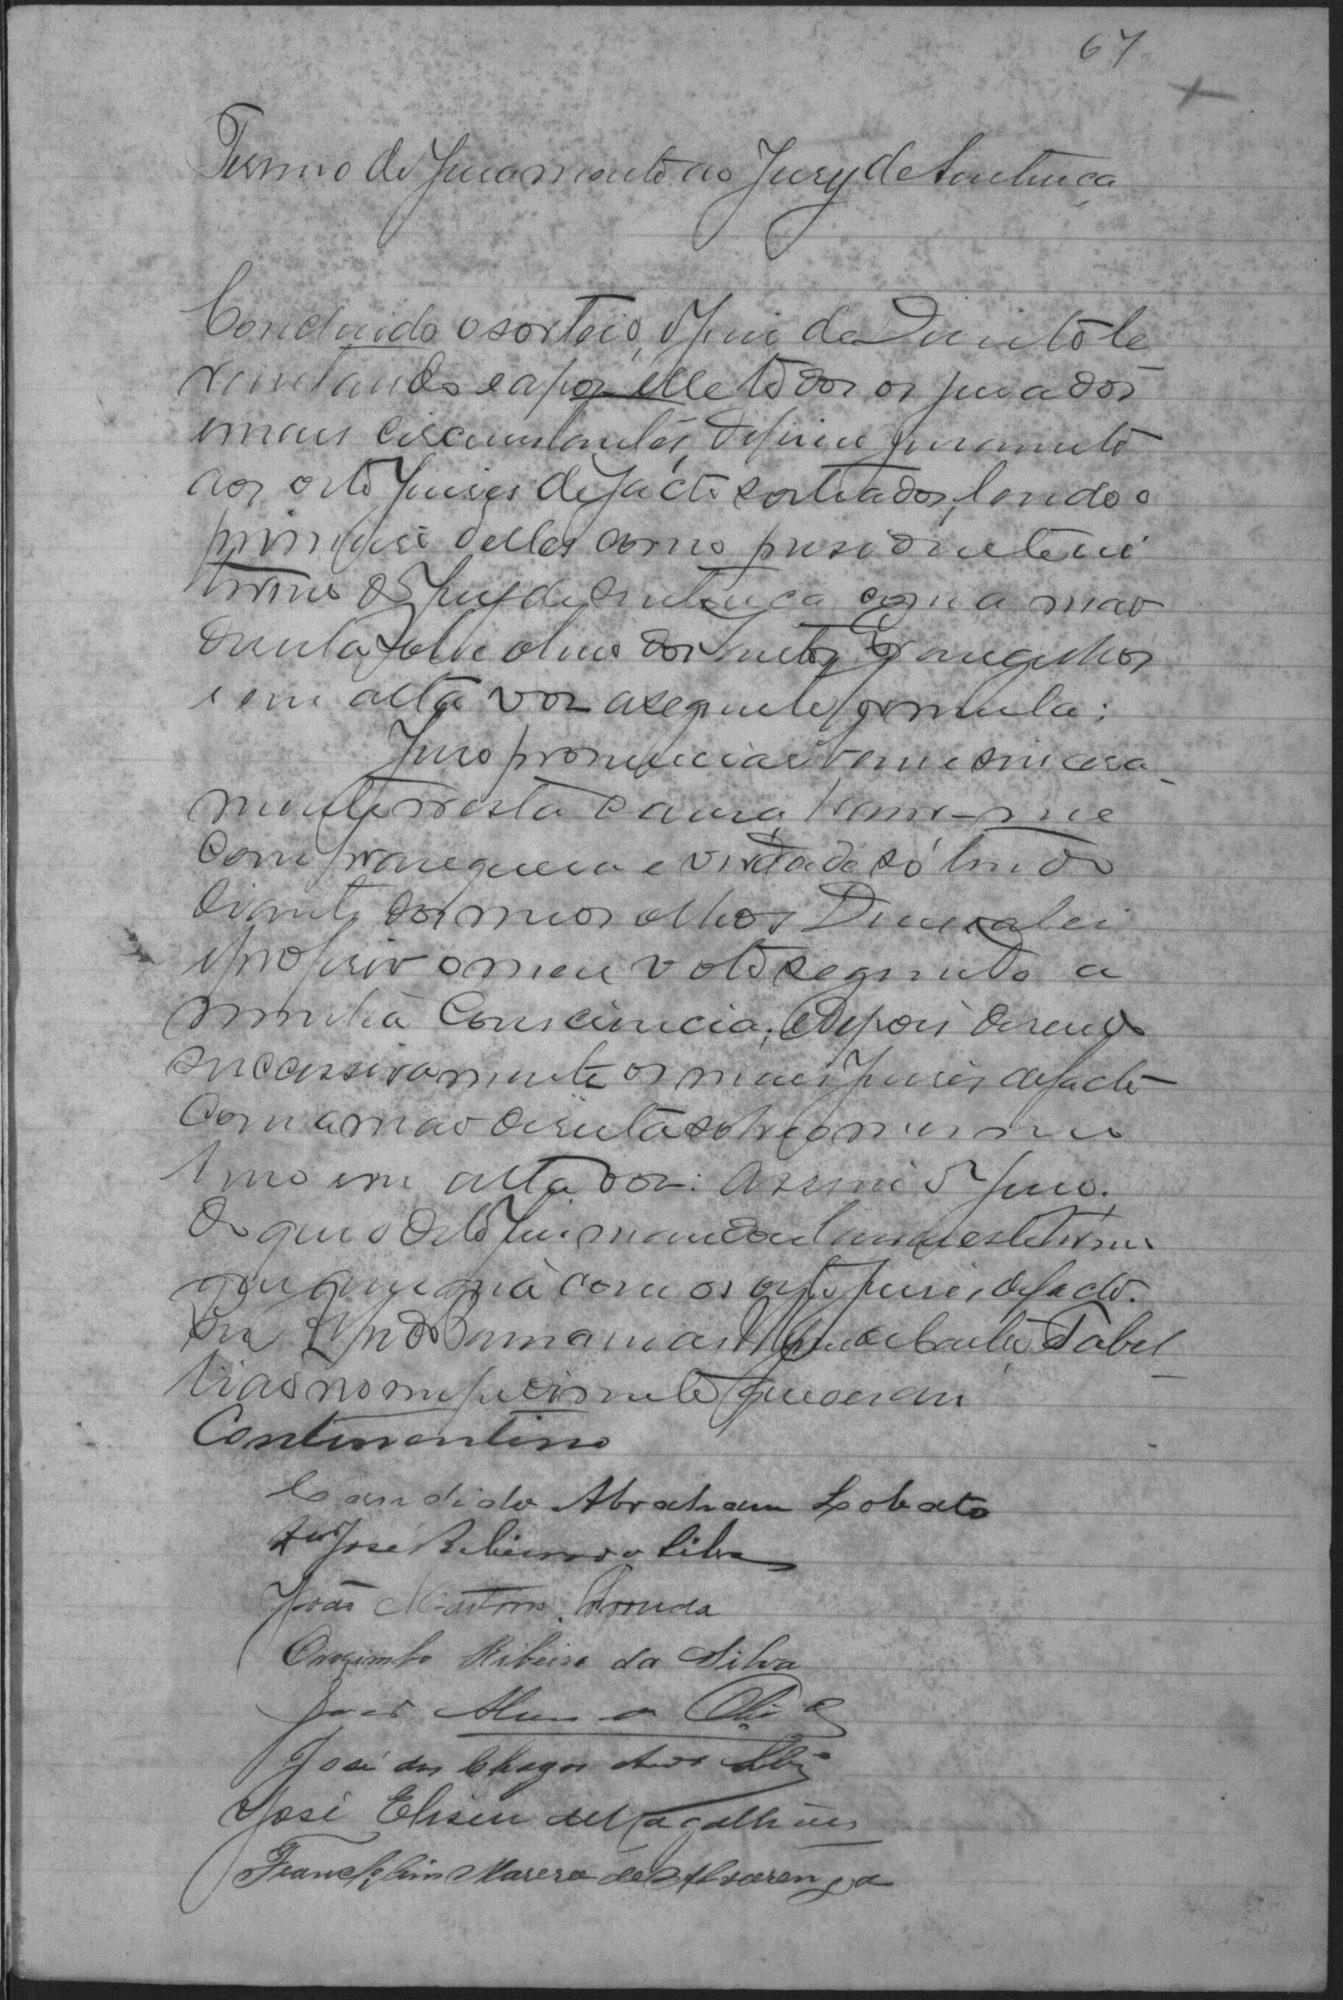 67
Termo de Juramento ao Jury de Sentença
Concluido o sorteio, o Juiz de Direito le
vantando e apoz elle todos os jurados
e mais circumstantes, deferiu juramento
aos oito Juizes de facto sorteados, lendo o
primeiro delles como presidente in
terino do Jury de Sentença com a mao
direita sobre o livro dos Santos Evangelhos
e em alta voz a seguinte formula:
Juro pronunciar bem e sincera-
mente nesta causa, haver-me
com franqueza e verdade só tendo
diante dos meus olhos Deus e a lei
e proferir o meu voto segundo a
minha Consciencia; e depois dizendo
successivamente os mais Juizes de facto
com a mao direita sobre o mesmo
livro em alta voz: Assim o Juro.
Do que o dito Juiz mandou lavrar este termo
que assigna com os oito Juizes de facto.
Eu Tabel
lião no impedimento que o escrevi
Continentino
Candido Abraham Lobato
José Ribeiro da Silva
João Martins Arruda
Orozimbo Ribeiro da Silva
João Alves de
José das Chagas
José Eliseu de Magalhães
Francklin Marera de Alvarenga